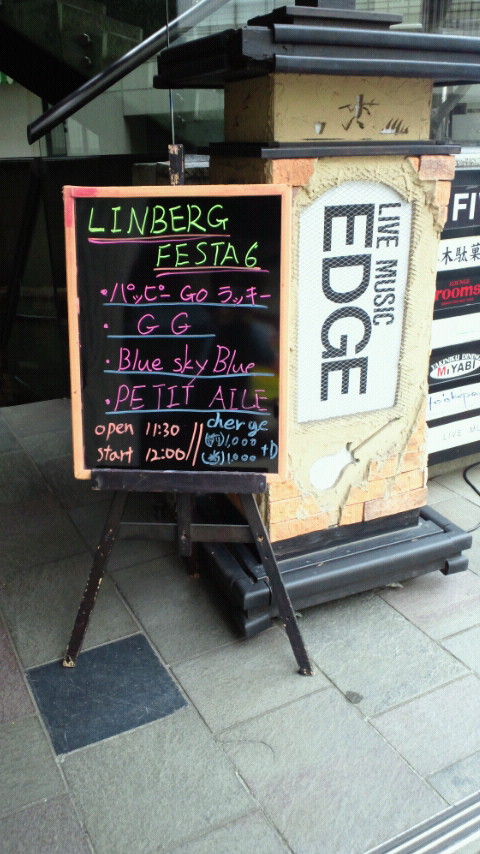 LINBERG
FESTA6
・ハッピー GO ラッキー
・ G G
・Blue sky Blue
・PETIT AILE
open 11:30
start 12:00
cherge
(前)1,000
(当)1,000 +D
LIVE MUSIC
EDGE
水
FI
木駄菓
rooms
MIYABI
LIVE MU